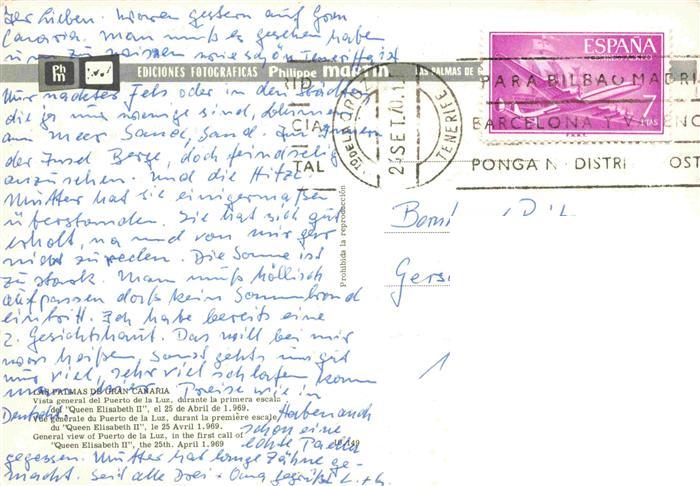 Ihr Lieben. Waren gestern auf Gran
Canaria. Man muß es gesehen haben
um zu wissen wie schön Teneriffa ist
Ph m
EDICIONES FOTOGRAFICAS Philippe martin LAS PALMAS DE G
Nur nacktes Fels oder in den Städten
die es nur wenige sind, drinnen
am Meer Sand, Sand. Im Innern
der Insel Berge, doch feindselig
anzusehen. Und die Hitze
Mutter hat sie einigermaßen
überstanden. Sie hat sich gut
erholt, na und von mir gar
nicht zu reden. Die Sonne ist
zu stark. Man muß höllisch
aufpassen daß kein Sonnenbrand
eintritt. Ich habe bereits eine
2. Gesichtshaut. Das will bei mir
was heißen, sonst gehts uns gut
nur viel, sehr viel schlafen kann
man hier. Preise wie in
Deutschl.
Haben auch
schon eine
echte Paella
gegessen. Mutter hat lange Zähne ge-
macht. Seid alle Drei + Oma gegrüßt
LAS PALMAS DE GRAN CANARIA
Vista general del Puerto de la Luz, durante la primera escala
del "Queen Elisabeth II", el 25 de Abril de 1.969.
Vue générale du Puerto de la Luz, durant la première escale
du "Queen Elisabeth II", le 25 Avril 1.969
General view of Puerto de la Luz, in the first call of
"Queen Elisabeth II", the 25th. April 1.969
Prohibida la reproducción
ESPAÑA
CORREO AEREO
7 PTAS
F.N.M.T.
TENERIFE
SET.
PARA BILBAO MADRI
BARCELONA Y VALENC
PONGA N DISTRI OST
RID
CIA
TAL
Gers